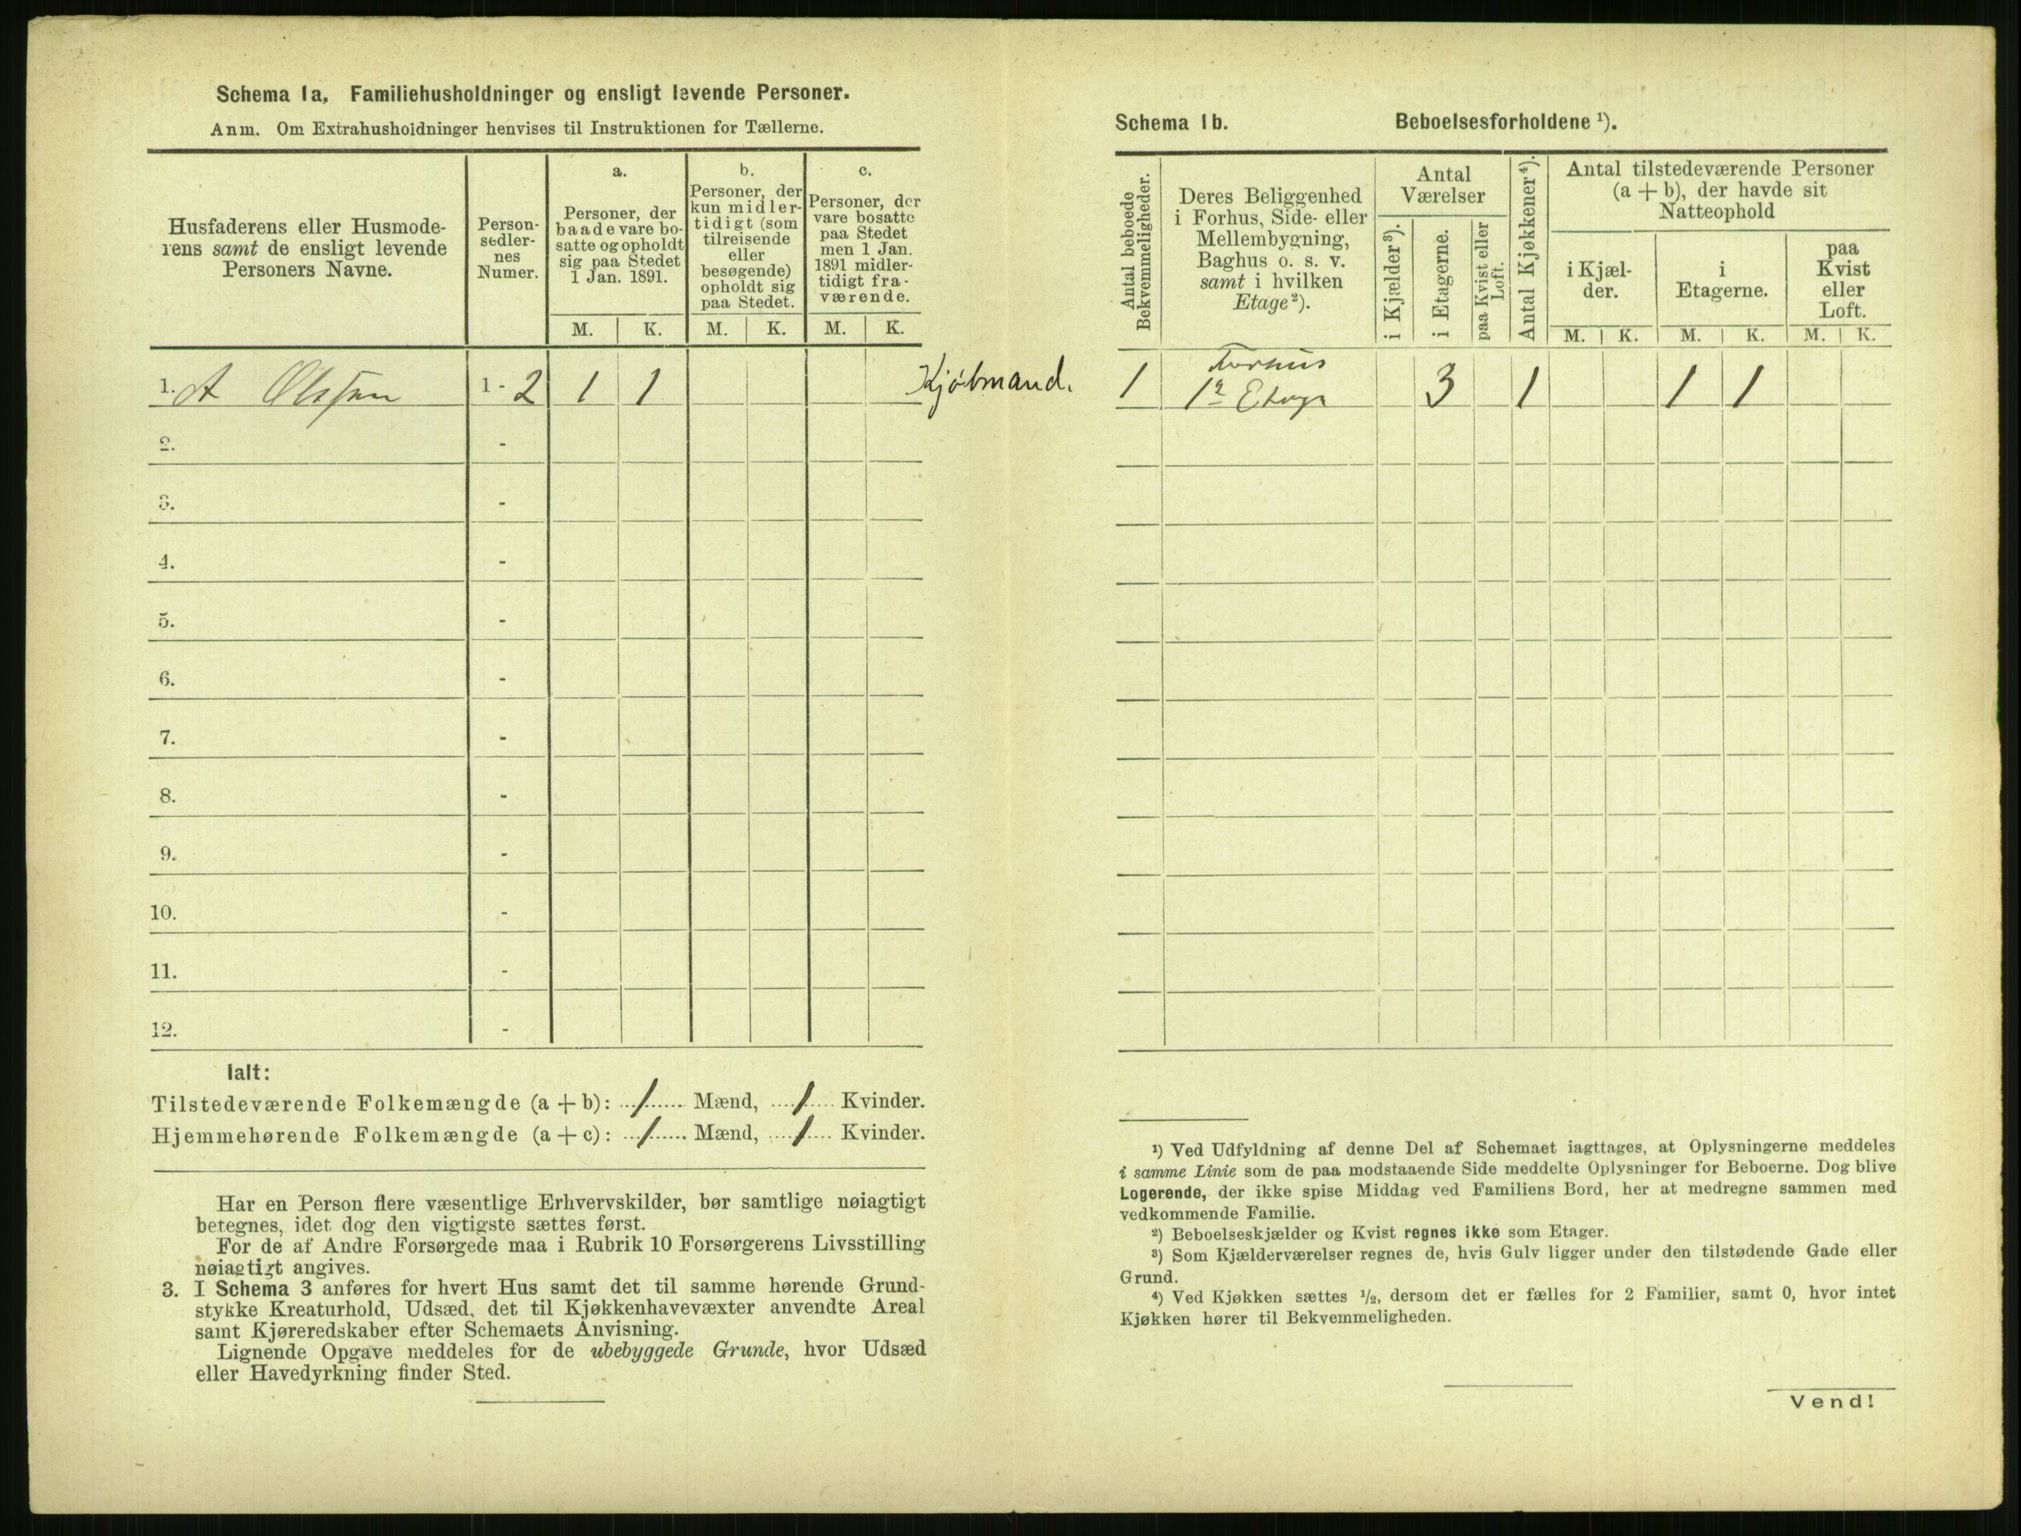 Schema 1a, Familiehusholdninger og ensligt levende Personer.
Anm. Om Extrahusholdninger henvises til Instruktionen for Tællerne.
Husfaderens eller Husmode-
rens samt de ensligt levende
Personers Navne.
Person-
sedler-
nes
Numer.
a.
Personer, der
baade vare bo-
satte og opholdt
sig paa Stedet
1 Jan. 1891.
b.
Personer, der
kun midler-
tidigt (som
tilreisende
eller
besøgende)
opholdt sig
paa Stedet.
c.
Personer, der
vare bosatte
paa Stedet
men 1 Jan.
1891 midler-
tidigt fra-
værende.
M. K. M. K. M. K.
1. A Olsen 1 - 2 1 1 Kjøbmand.
2. -
3. -
4. -
5. -
6. -
7. -
8. -
9. -
10. -
11. -
12. -
Ialt:
Tilstedeværende Folkemængde (a + b): 1 Mænd, 1 Kvinder.
Hjemmehørende Folkemængde (a + c): 1 Mænd, 1 Kvinder.
Har en Person flere væsentlige Erhvervskilder, bør samtlige nøiagtigt
betegnes, idet dog den vigtigste sættes først.
For de af Andre Forsørgede maa i Rubrik 10 Forsørgerens Livsstilling
nøiagtigt angives.
3. I Schema 3 anføres for hvert Hus samt det til samme hørende Grund-
stykke Kreaturhold, Udsæd, det til Kjøkkenhavevæxter anvendte Areal
samt Kjøreredskaber efter Schemaets Anvisning.
Lignende Opgave meddeles for de ubebyggede Grunde, hvor Udsæd
eller Havedyrkning finder Sted.
Schema 1b. Beboelsesforholdene ¹).
Antal beboede
Bekvemmeligheder.
Deres Beliggenhed
i Forhus, Side- eller
Mellembygning,
Baghus o. s. v.
samt i hvilken
Etage²).
Antal
Værelser
i Kjælder³).
i Etagerne.
paa Kvist eller
Loft.
Antal Kjøkkener⁴).
Antal tilstedeværende Personer
(a + b), der havde sit
Natteophold
i Kjæl-
der.
i
Etagerne.
paa
Kvist
eller
Loft.
M. K. M. K. M. K.
Forhus
1 1ᵉ Etage 3 1 1 1
¹) Ved Udfyldning af denne Del af Schemaet iagttages, at Oplysningerne meddeles
i samme Linie som de paa modstaaende Side meddelte Oplysninger for Beboerne. Dog blive
Logerende, der ikke spise Middag ved Familiens Bord, her at medregne sammen med
vedkommende Familie.
²) Beboelseskjælder og Kvist regnes ikke som Etager.
³) Som Kjælderværelser regnes de, hvis Gulv ligger under den tilstødende Gade eller
Grund.
⁴) Ved Kjøkken sættes ½, dersom det er fælles for 2 Familier, samt 0, hvor intet
Kjøkken hører til Bekvemmeligheden.
Vend!